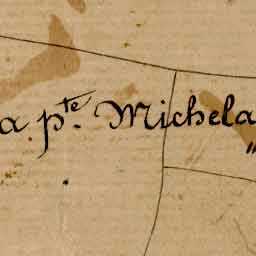 a pte. Michela
"